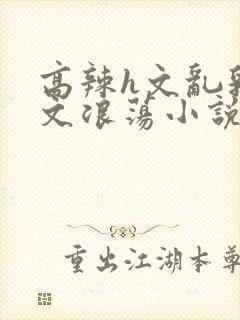 高辣h文亂
文浪蕩小說
重出江湖本尊